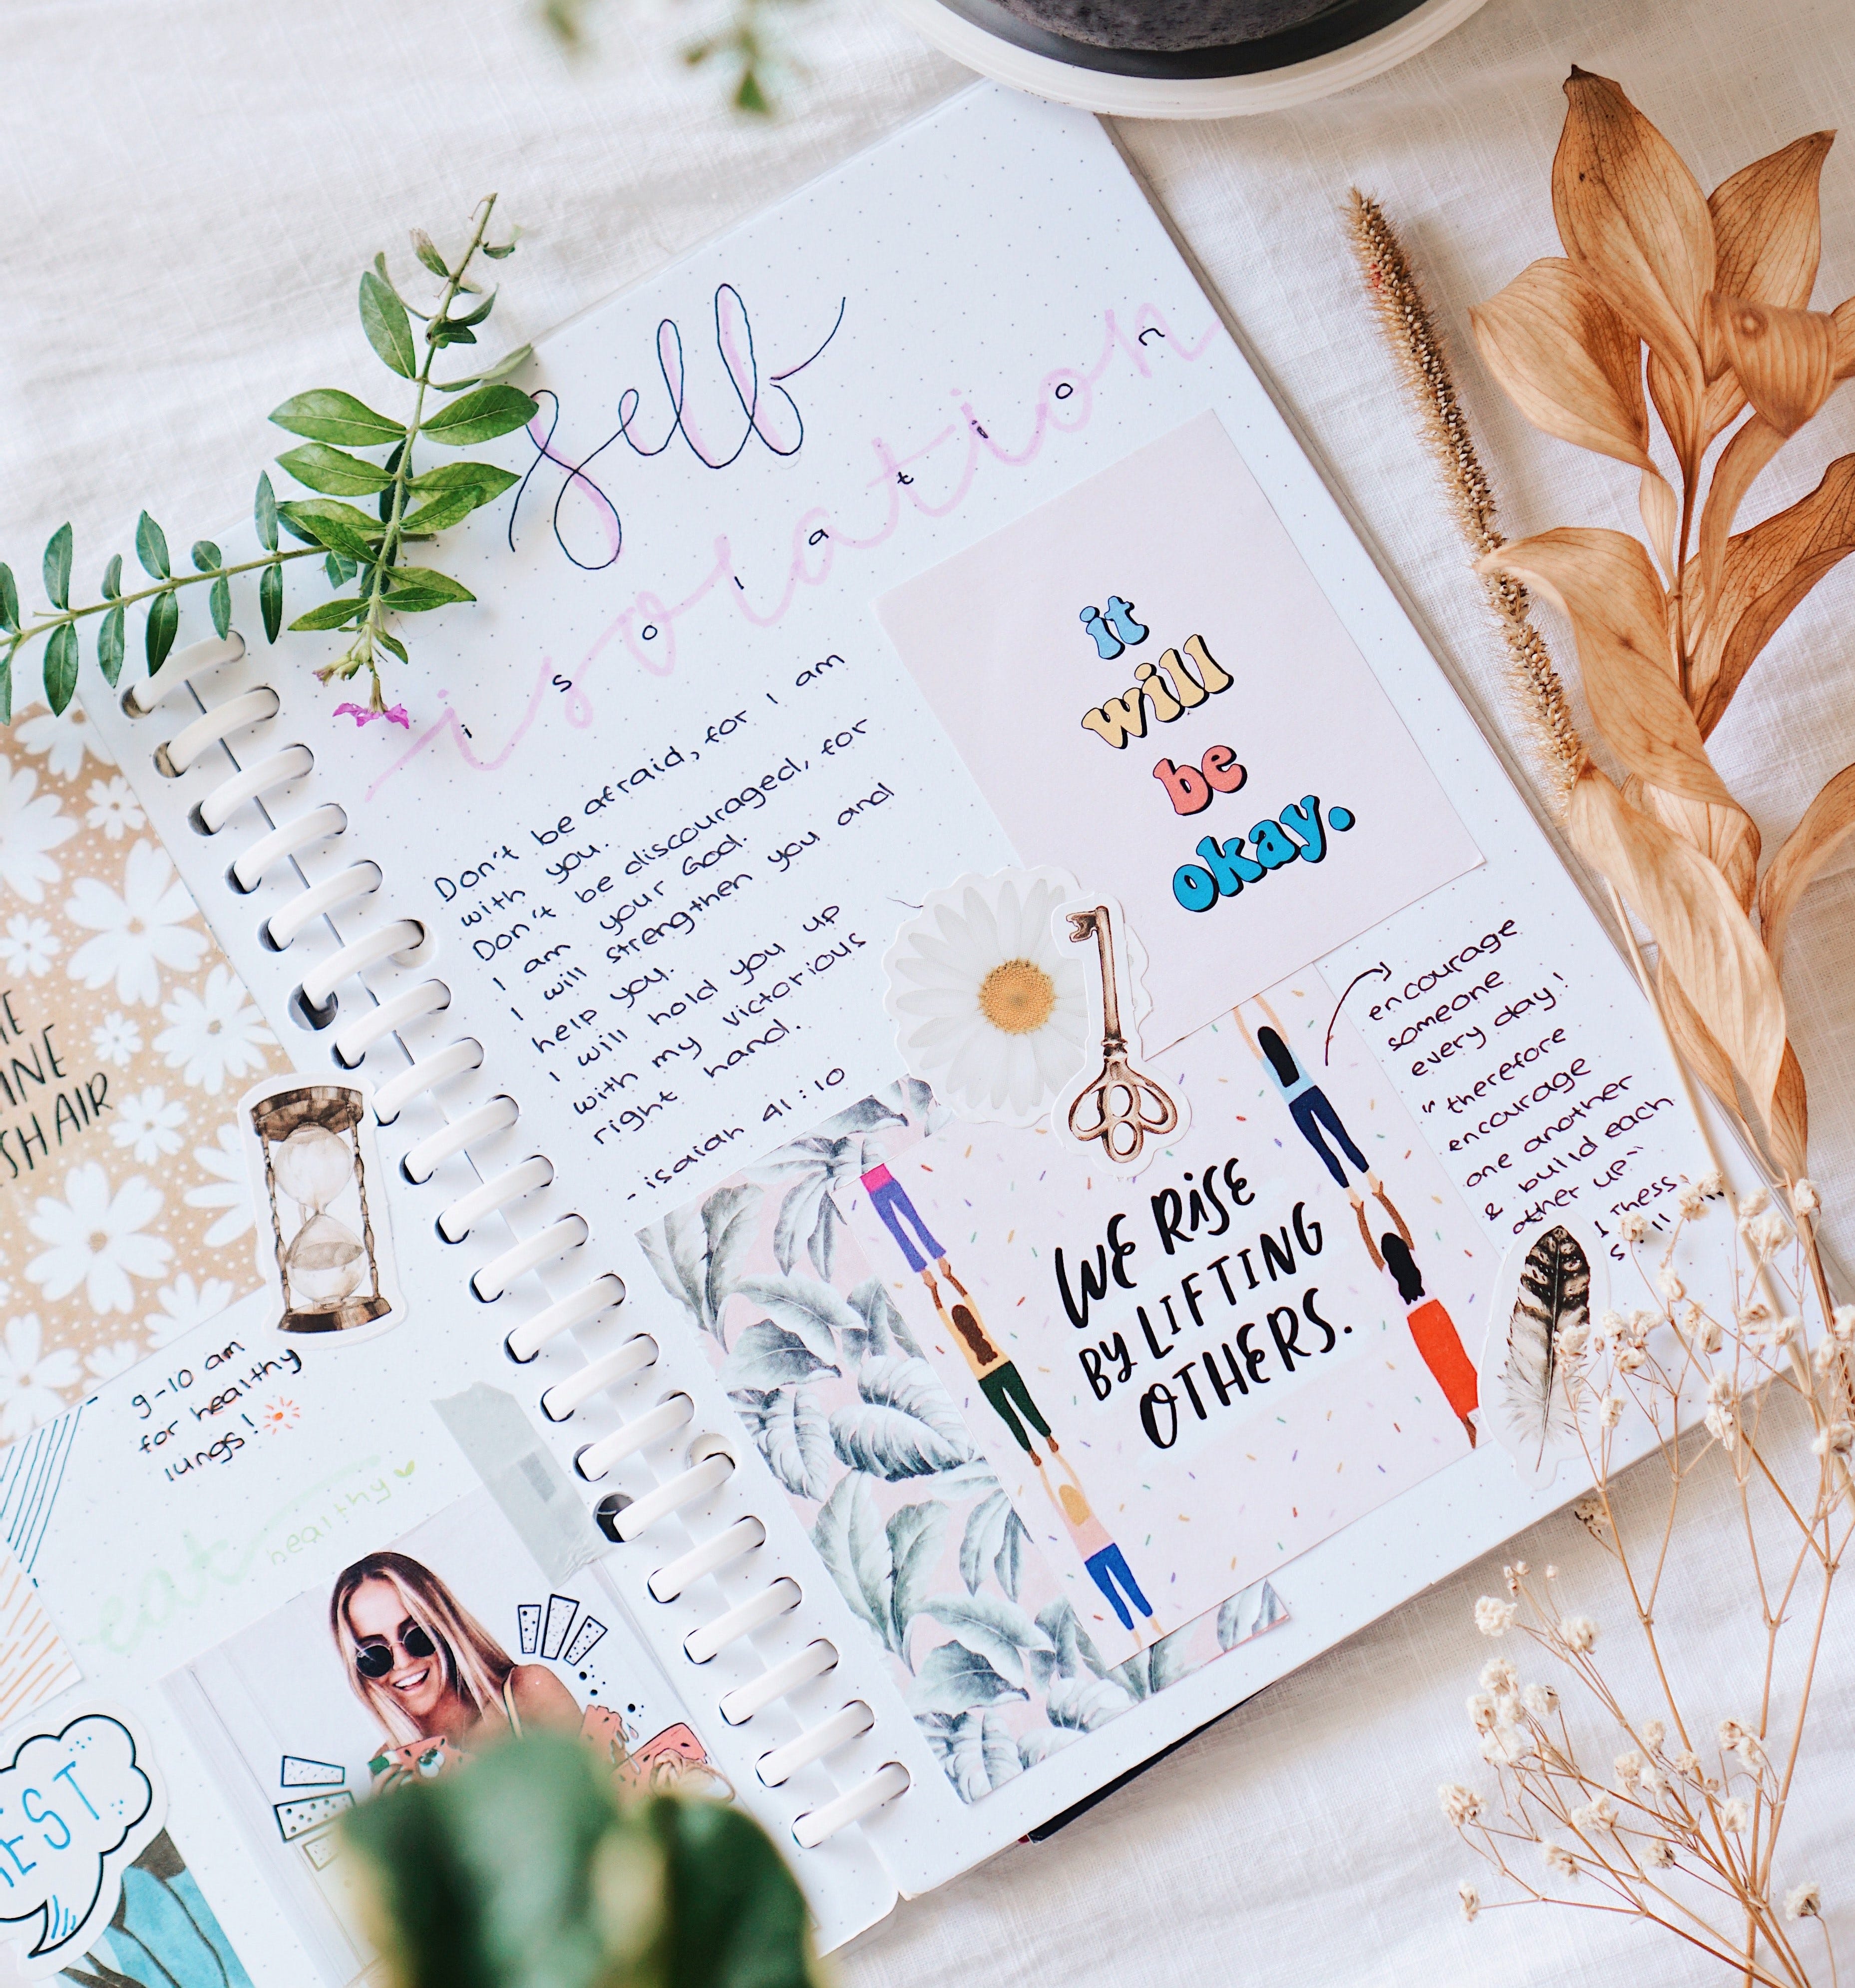 self
isolation
Don't be afraid, for I am
with you.
Don't be discouraged, for
I am your God.
I will strengthen you and
help you.
I will hold you up
with my victorious
right hand.
- isaiah 41:10
it
will
be
okay.
encourage
someone
every day!
"therefore
encourage
one another
& build each
other up"
1 Thess.
5:11
WE RISE
BY LIFTING
OTHERS.
SHAIR
9-10 am
for healthy
lungs!
eat
healthy
EST